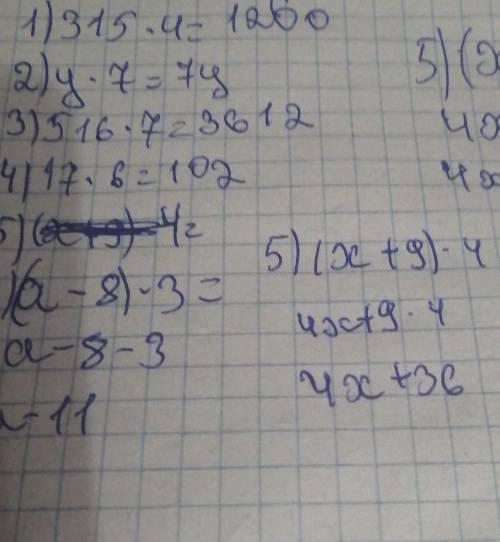 1) 315 · 4 = 1260
2) y · 7 = 7y
3) 516 · 7 = 3612
4) 17 · 6 = 102
5) (x + 9) · 4 =
)(a - 8) · 3 =
a - 8 - 3
a - 11
5) (x
4x
4x
5) (x + 9) · 4
4x + 9 · 4
4x + 36